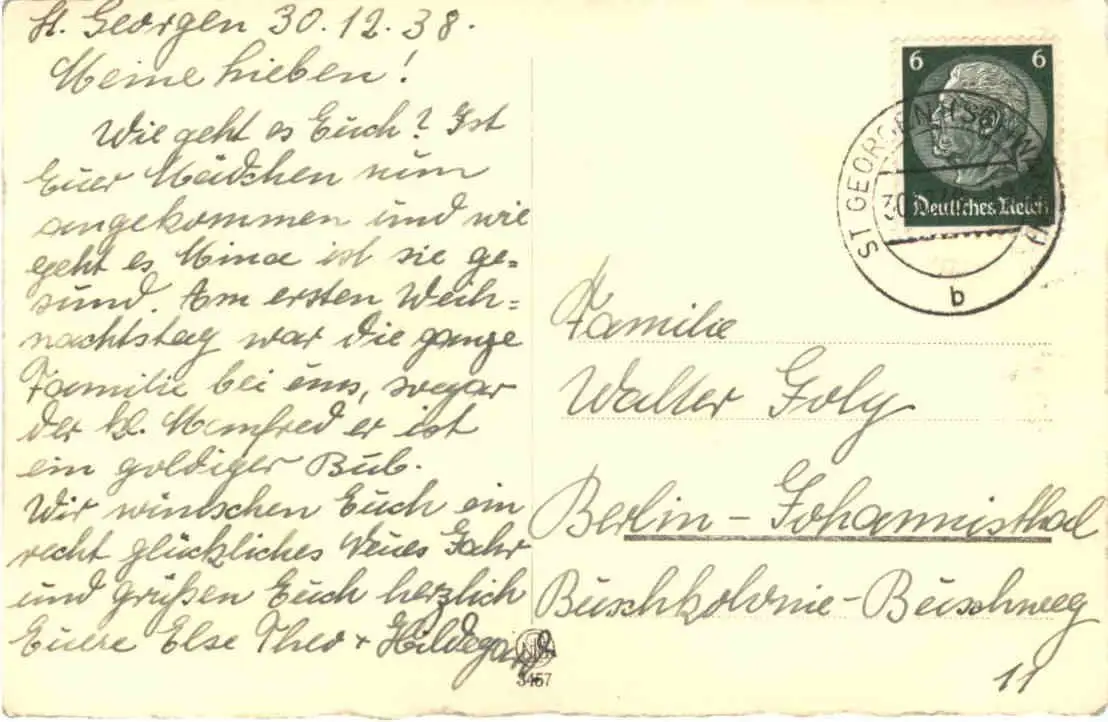 St. Georgen 30.12.38.
Meine Lieben!
Wie geht es Euch? Ist
Euer Mädchen nun
angekommen und wie
geht es Mina ist sie ge=
sund. Am ersten Weih=
nachtstag war die ganze
Familie bei uns, sogar
der kl. Manfred er ist
ein goldiger Bub.
Wir wünschen Euch ein
recht glückliches Neues Jahr
und grüßen Euch herzlich
Euere Else Theo + Hildegard
3457
6 6
Deutsches Reich
ST GEORGEN (SCHWARZW
30.12.38
b
Familie
Walter Goly
Berlin - Johannisthal
Buschkolonie - Buschweg
11